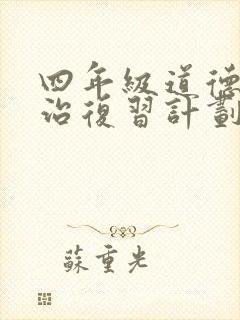 四年級道德
治復習計劃
蘇重光